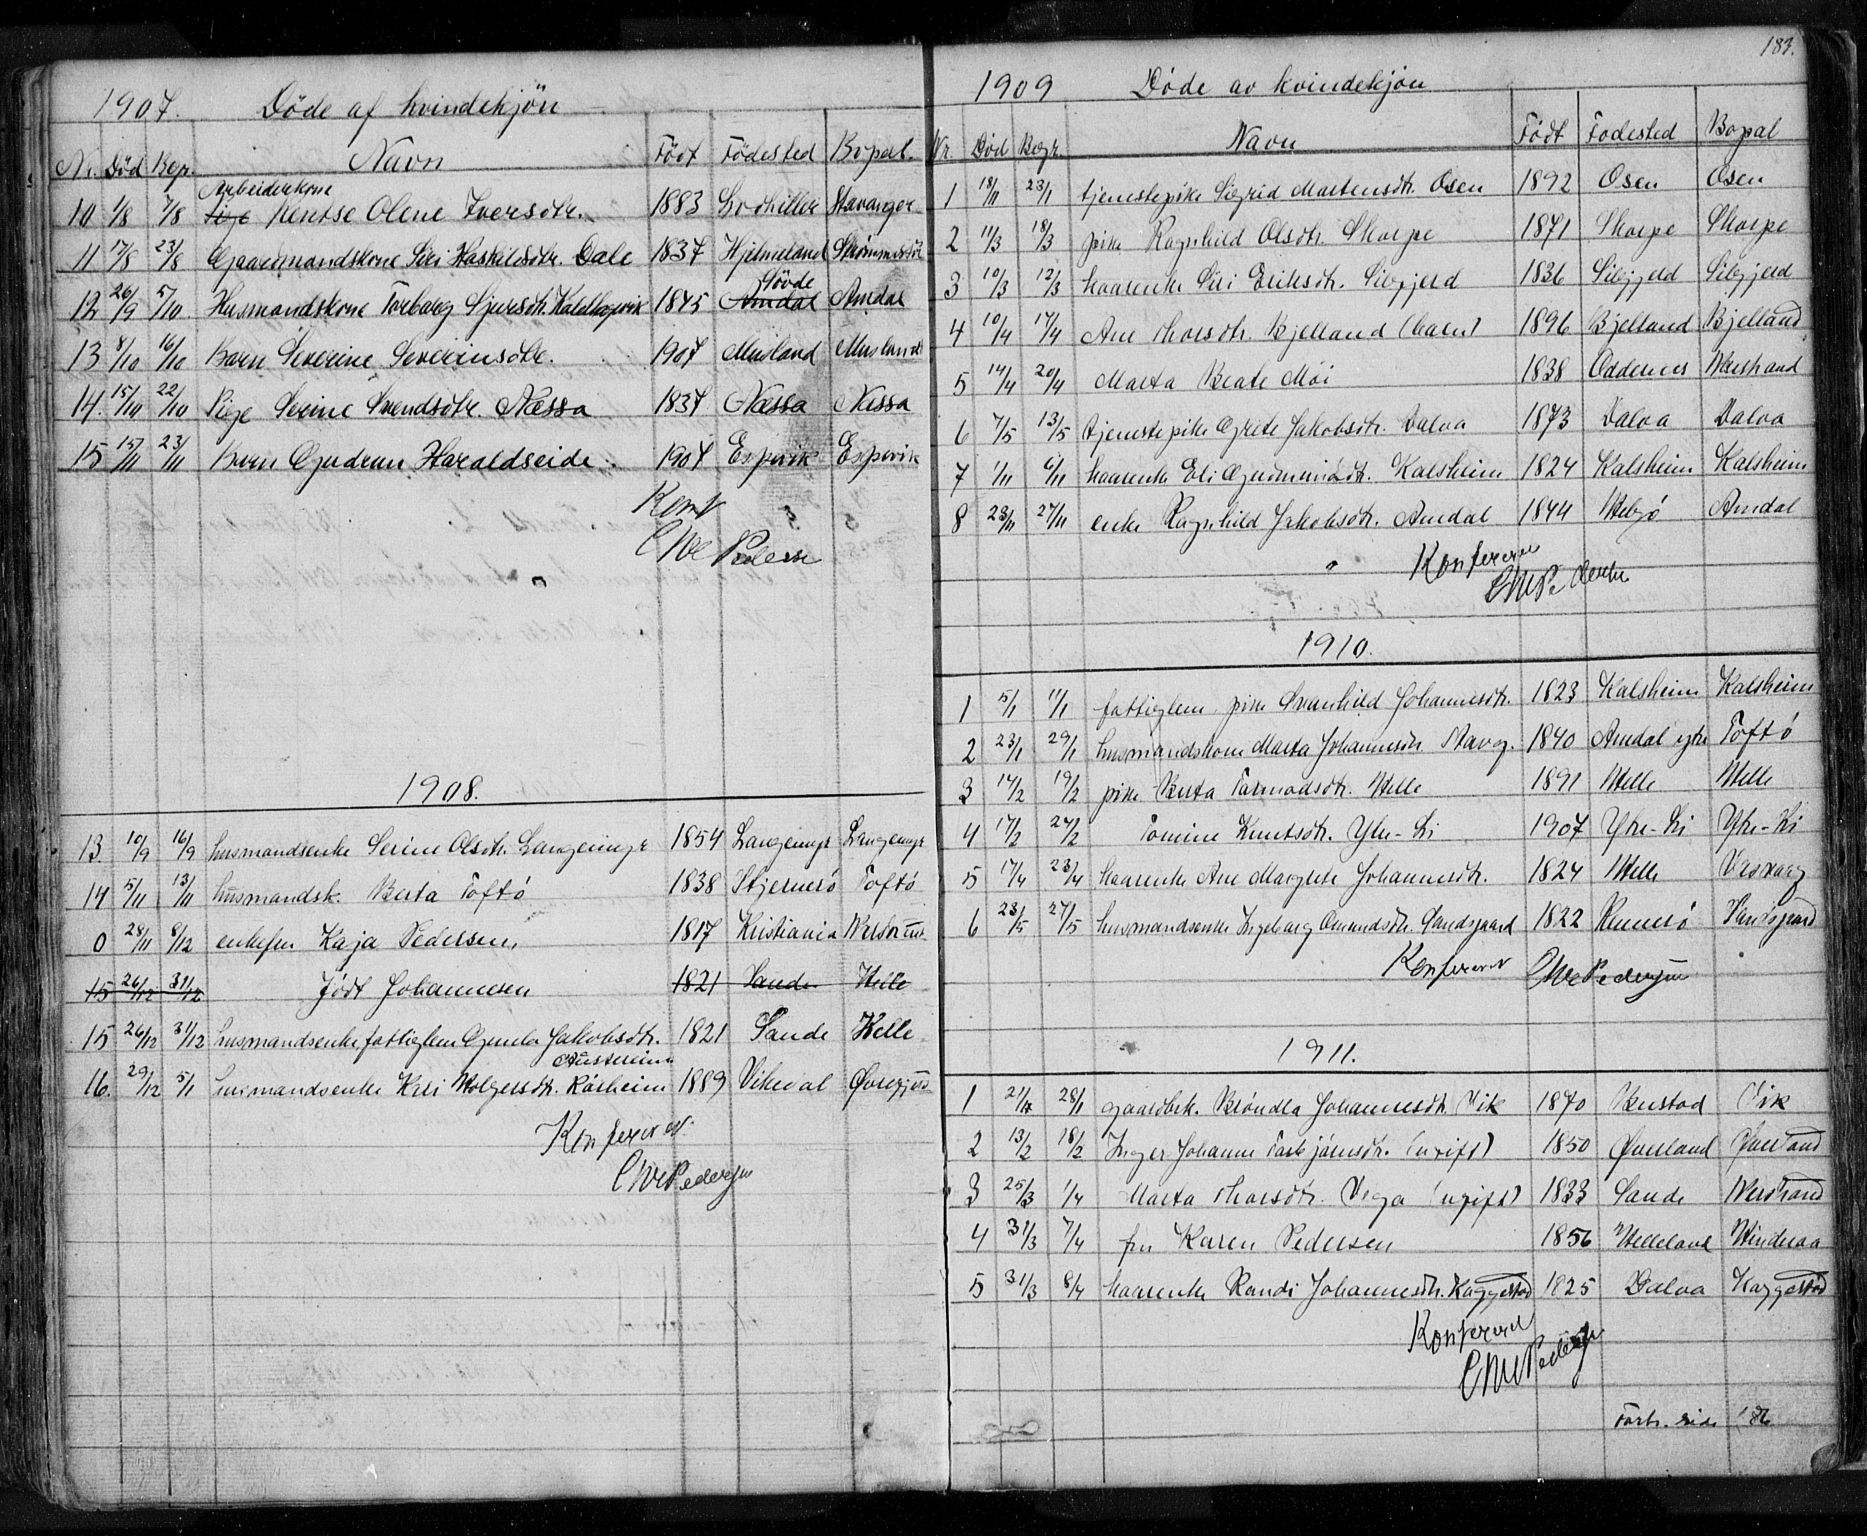 1907. Døde af kvindekjøn
Nr. Død Begr. Navn Født Födested Bopæl.
Arbeiderkone
10 1/8 7/8 Pige Kentse Olene Iversdtr. 1883 Stavanger
11 17/8 23/8 Gaardmandskone Siri Haskildsdtr. Dale 1837 Hjelmeland
Søvde
12 26/9 5/10 Husmandskone Torborg Sjursdtr. 1845 Amdal Amdal
13 8/10 16/10 Barn Severine Severinsdtr. 1907 Musland Musland
14. 15/10 22/10 Pige Serine Svendsdtr. Næssa 1837 Næssa Næssa
15 15/11 23/11 Barn Gudrun Haraldseide. 1907 Espevik Espevik
Konf
Pedersen
1908.
13. 10/9 16/9 husmandsenke Serine Olsdtr. Langeinye 1854 Langeinye Langeinye
14 5/11 13/11 husmandsk. Berta Toftö 1838 Stjernerö Toftö
0 28/11 8/12 enkefru Kaja Pedersen, 1817 Kristiania
15 26/12 31/12 Jödt Johannesen 1821 Sande Helle
15 26/12 31/12 husmandsenke fattiglem Gunla Jakobsdtr. 1821 Sande Helle
16. 29/12 5/1 husmandsenke Kari Holgersdtr. Rørheim 1889 Vikeval
Konfereret.
Pedersen
183.
1909 Døde av kvindekjøn
Nr. Död Begr. Navn Født Fodested Bopal
1 18/11 23/1 tjenestepike Sigrid Mortensdtr. Osen 1892 Osen Osen
2 11/3 18/3 pike Ragnhild Olsdtr. Skorpe 1871 Skorpe Skorpe
3 10/3 12/3 kaarenke Siri Eriksdtr. Libjjerd 1836 Libjjeld Libjjeld
4 10/4 17/4 Ane Thorsdtr. Bjelland (barn) 1896 Bjelland Bjelland
5 14/4 20/4 Marta Beate Moi 1838 Oddernes
6 7/5 13/5 tjenestepike Grete Jakobsdtr. Dalva 1873 Dalva Dalva
7 1/11 6/11 kaarenke Eli Gudmundsdt. Kalsheim 1824 Kalsheim Kalsheim
8 23/11 27/11 enke Ragnhild Jakobsdtr. Amdal 1844 Amdal
Konfereret
Pedersen
1910.
1 5/1 11/1 fattiglem pike Svanhild Johannesdtr. 1823 Kalsheim Kalsheim
2 23/1 29/1 husmandskone Marta Johannesdtr. Navog. 1840 Amdal ytre Toftö
3 14/2 19/2 pike Berta Tormodsdtr. Helle 1891 Helle Helle
4 17/2 24/2 Tomine Knutsdtr. Ytre-Li 1907 Ytre-Li Ytre-Li
5 17/4 23/4 kaarenke Ane Margrete Johannesdtr. 1824 Helle
6 23/5 27/5 husmandsenke Ingeborg Omundsdtr. Sandsgaard 1822 Rennesö Sandsgaard
Konfereret Pedersen
1911.
1 28/1 gaardbrk. Brøndla Johannesdtr. Vik 1870 Vik
2 13/2 18/2 Inger Johanne Torbjörnsdtr. (ugift) 1850 Øverland Øverland
3 25/3 1/4 Marta Thorsdtr. Vaga (ugift) 1833 Sande
4 31/3 7/4 fru Karen Pedersen 1856
5 31/3 8/4 kaarenke Randi Johannesdtr. Kaggestad 1825 Dalva Kaggestad
Konfereret
Pedersen
Forts. side 186